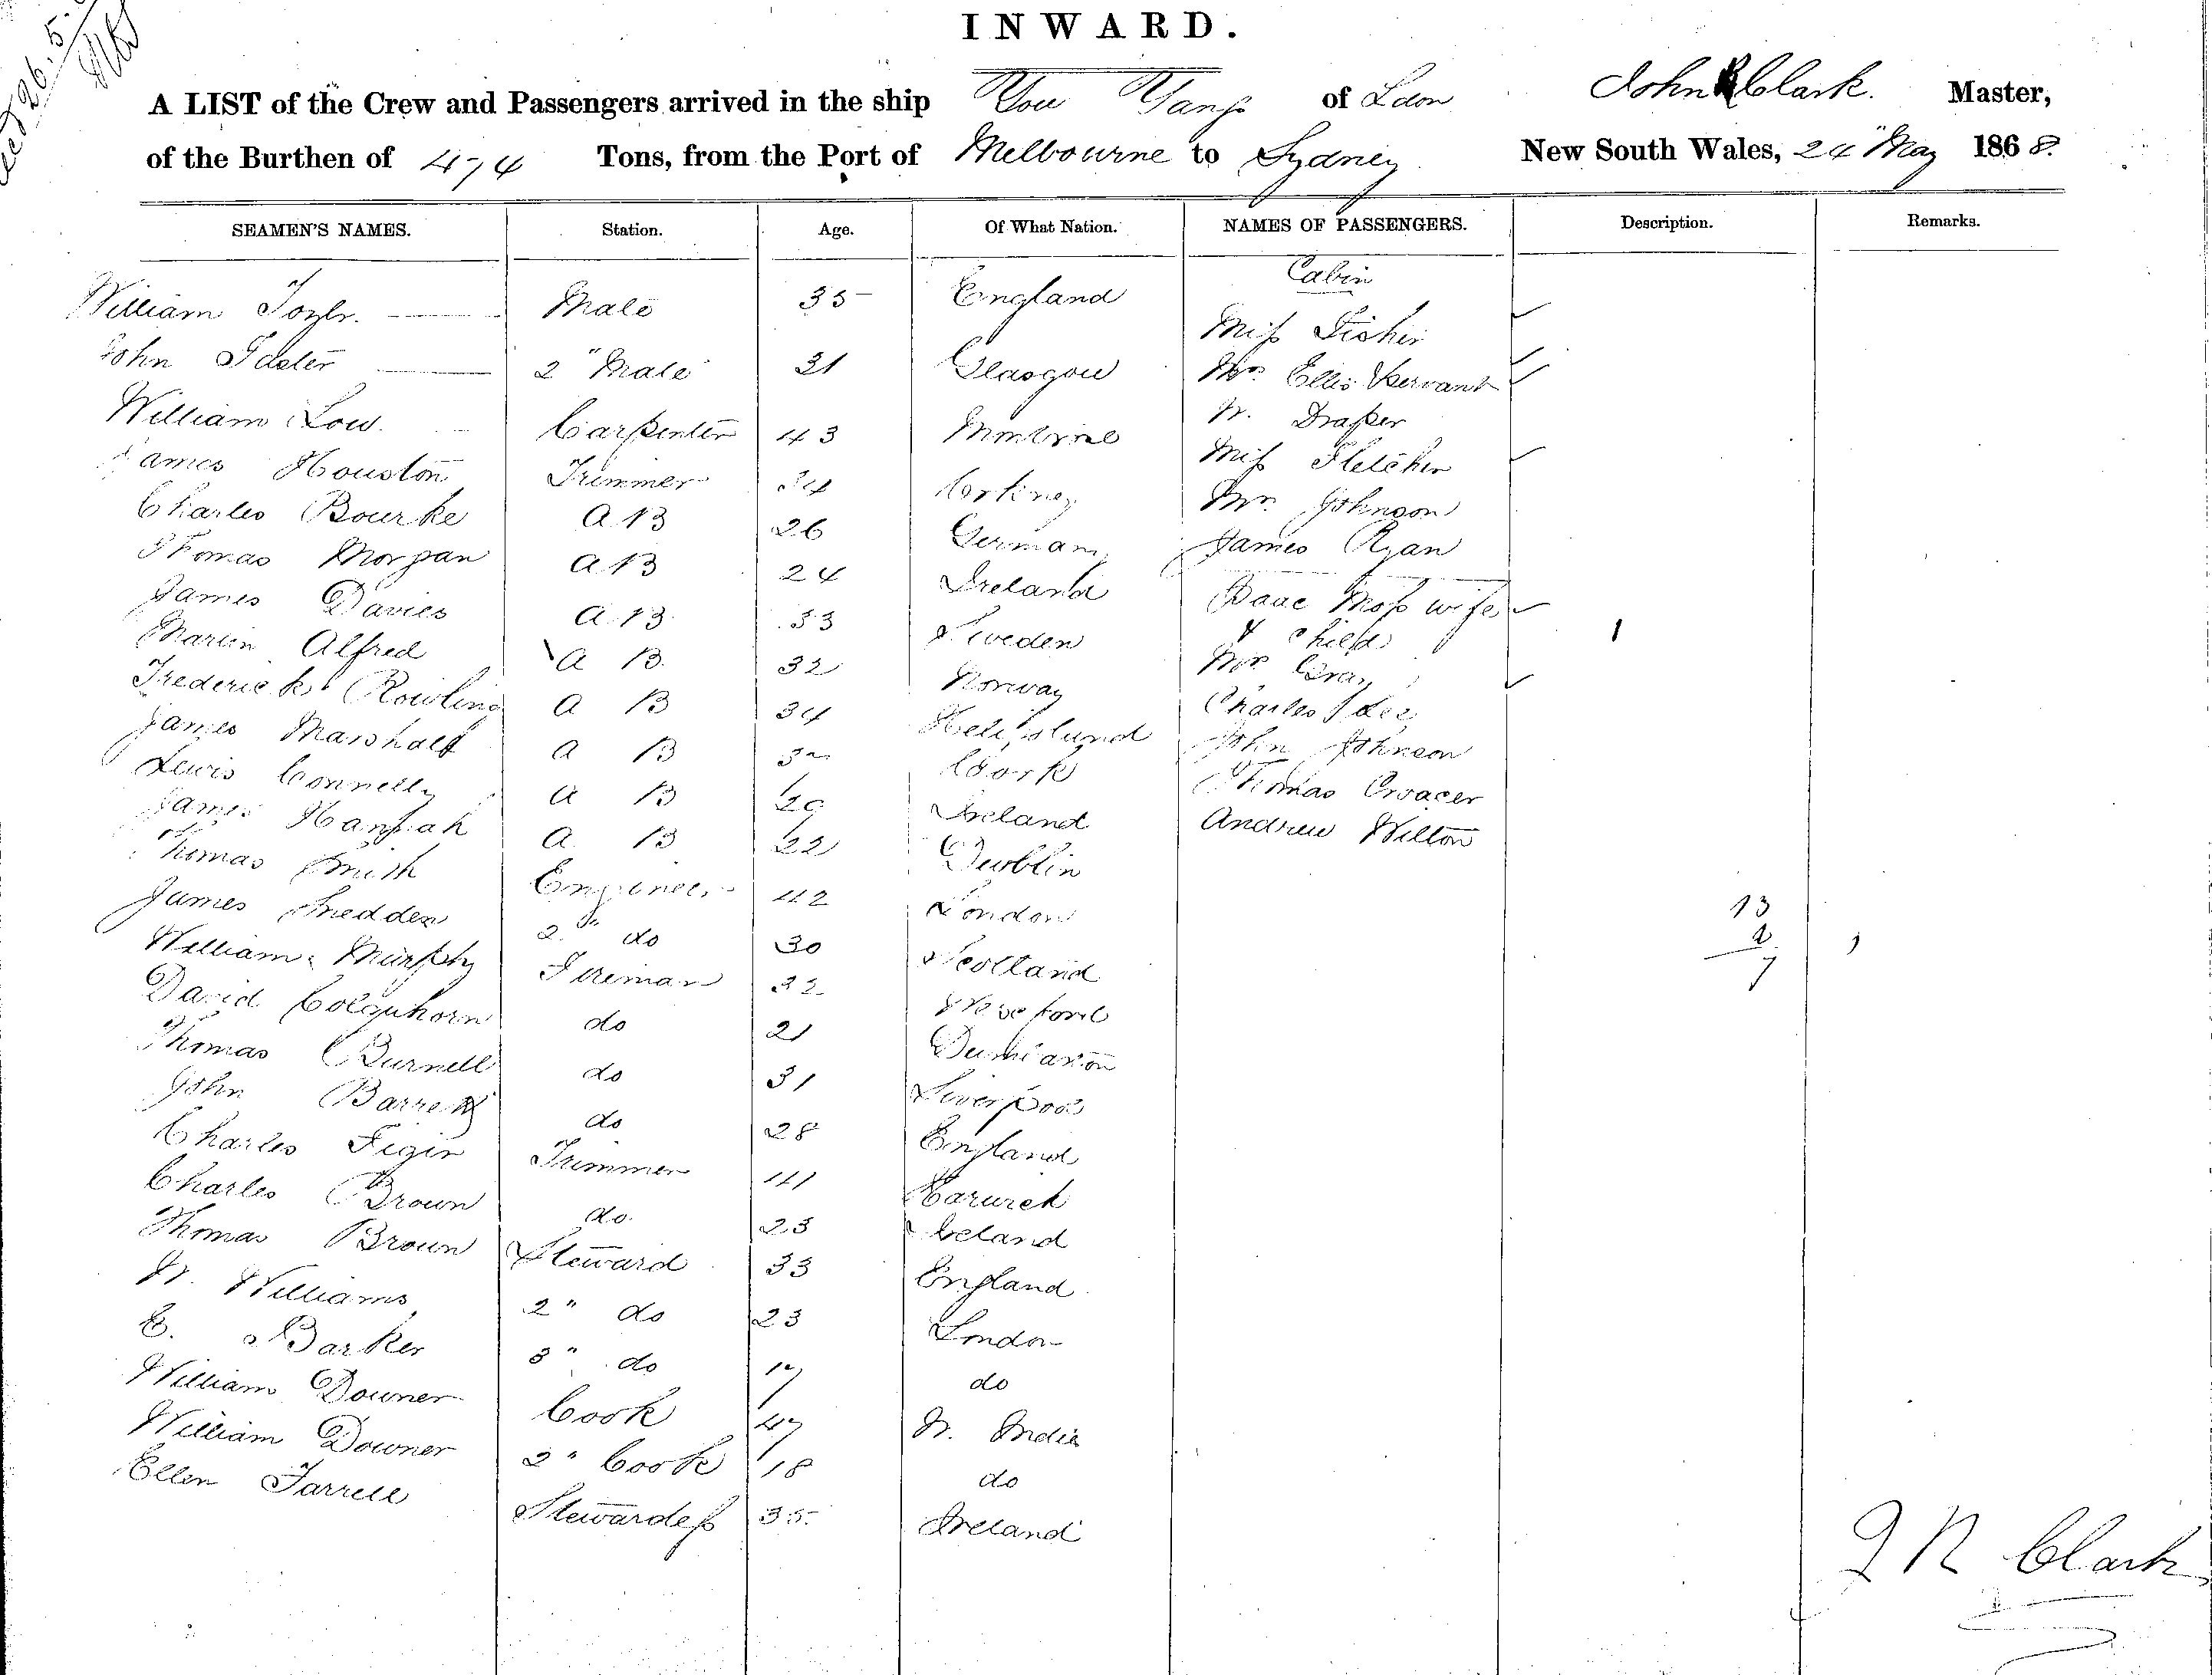 INWARD.
A LIST of the Crew and Passengers arrived in the ship You Yangs of Lon John R Clark. Master,
of the Burthen of 474 Tons, from the Port of Melbourne to Sydney New South Wales, 24" May 1868.
SEAMEN'S NAMES. Station. Age. Of What Nation. NAMES OF PASSENGERS. Description. Remarks.
Cabin
William Mate 35 England
Miss Fisher
John 2" Mate 31 Glasgow
Mrs Ellis & Servant
William Low. Carpenter 43
Mr. Draper
James Houston Trimmer 24
Miss Fletcher
Charles Bourke A.B 26 German
Mr. Johnson
Thomas Morgan A.B 24 Ireland
James Ryan
James Davies A.B. 33 Sweden
Isaac Moss wife
& Child 1
Martin Alfred A B. 32 Norway
Mr Gray
Frederick Rowling A B 34
Charles
James Marshall A B Cork
John Johnson
Lewis Connelly A B Ireland
Thomas
James Hannah A. B 22 Dublin
Andrew Wilton
Thomas Smith Engineer 42 London
13
James Snedden 2nd do 30 Scotland
2
William Murphy Fireman 22
David Colquhorn do 21
Thomas Burnell do 31 Liverpool
John Barrett do 28 England
Charles Trimmer 41
Charles Brown do. 23 Ireland
Thomas Brown Steward 33 England
W. Williams 2" do 23 London
C. Barker 3" do 17 do
William Downer Cook 47 W. India
William Downer 2" Cook 18 do
Ellen Farrell Stewardess 35 Ireland
J R Clark